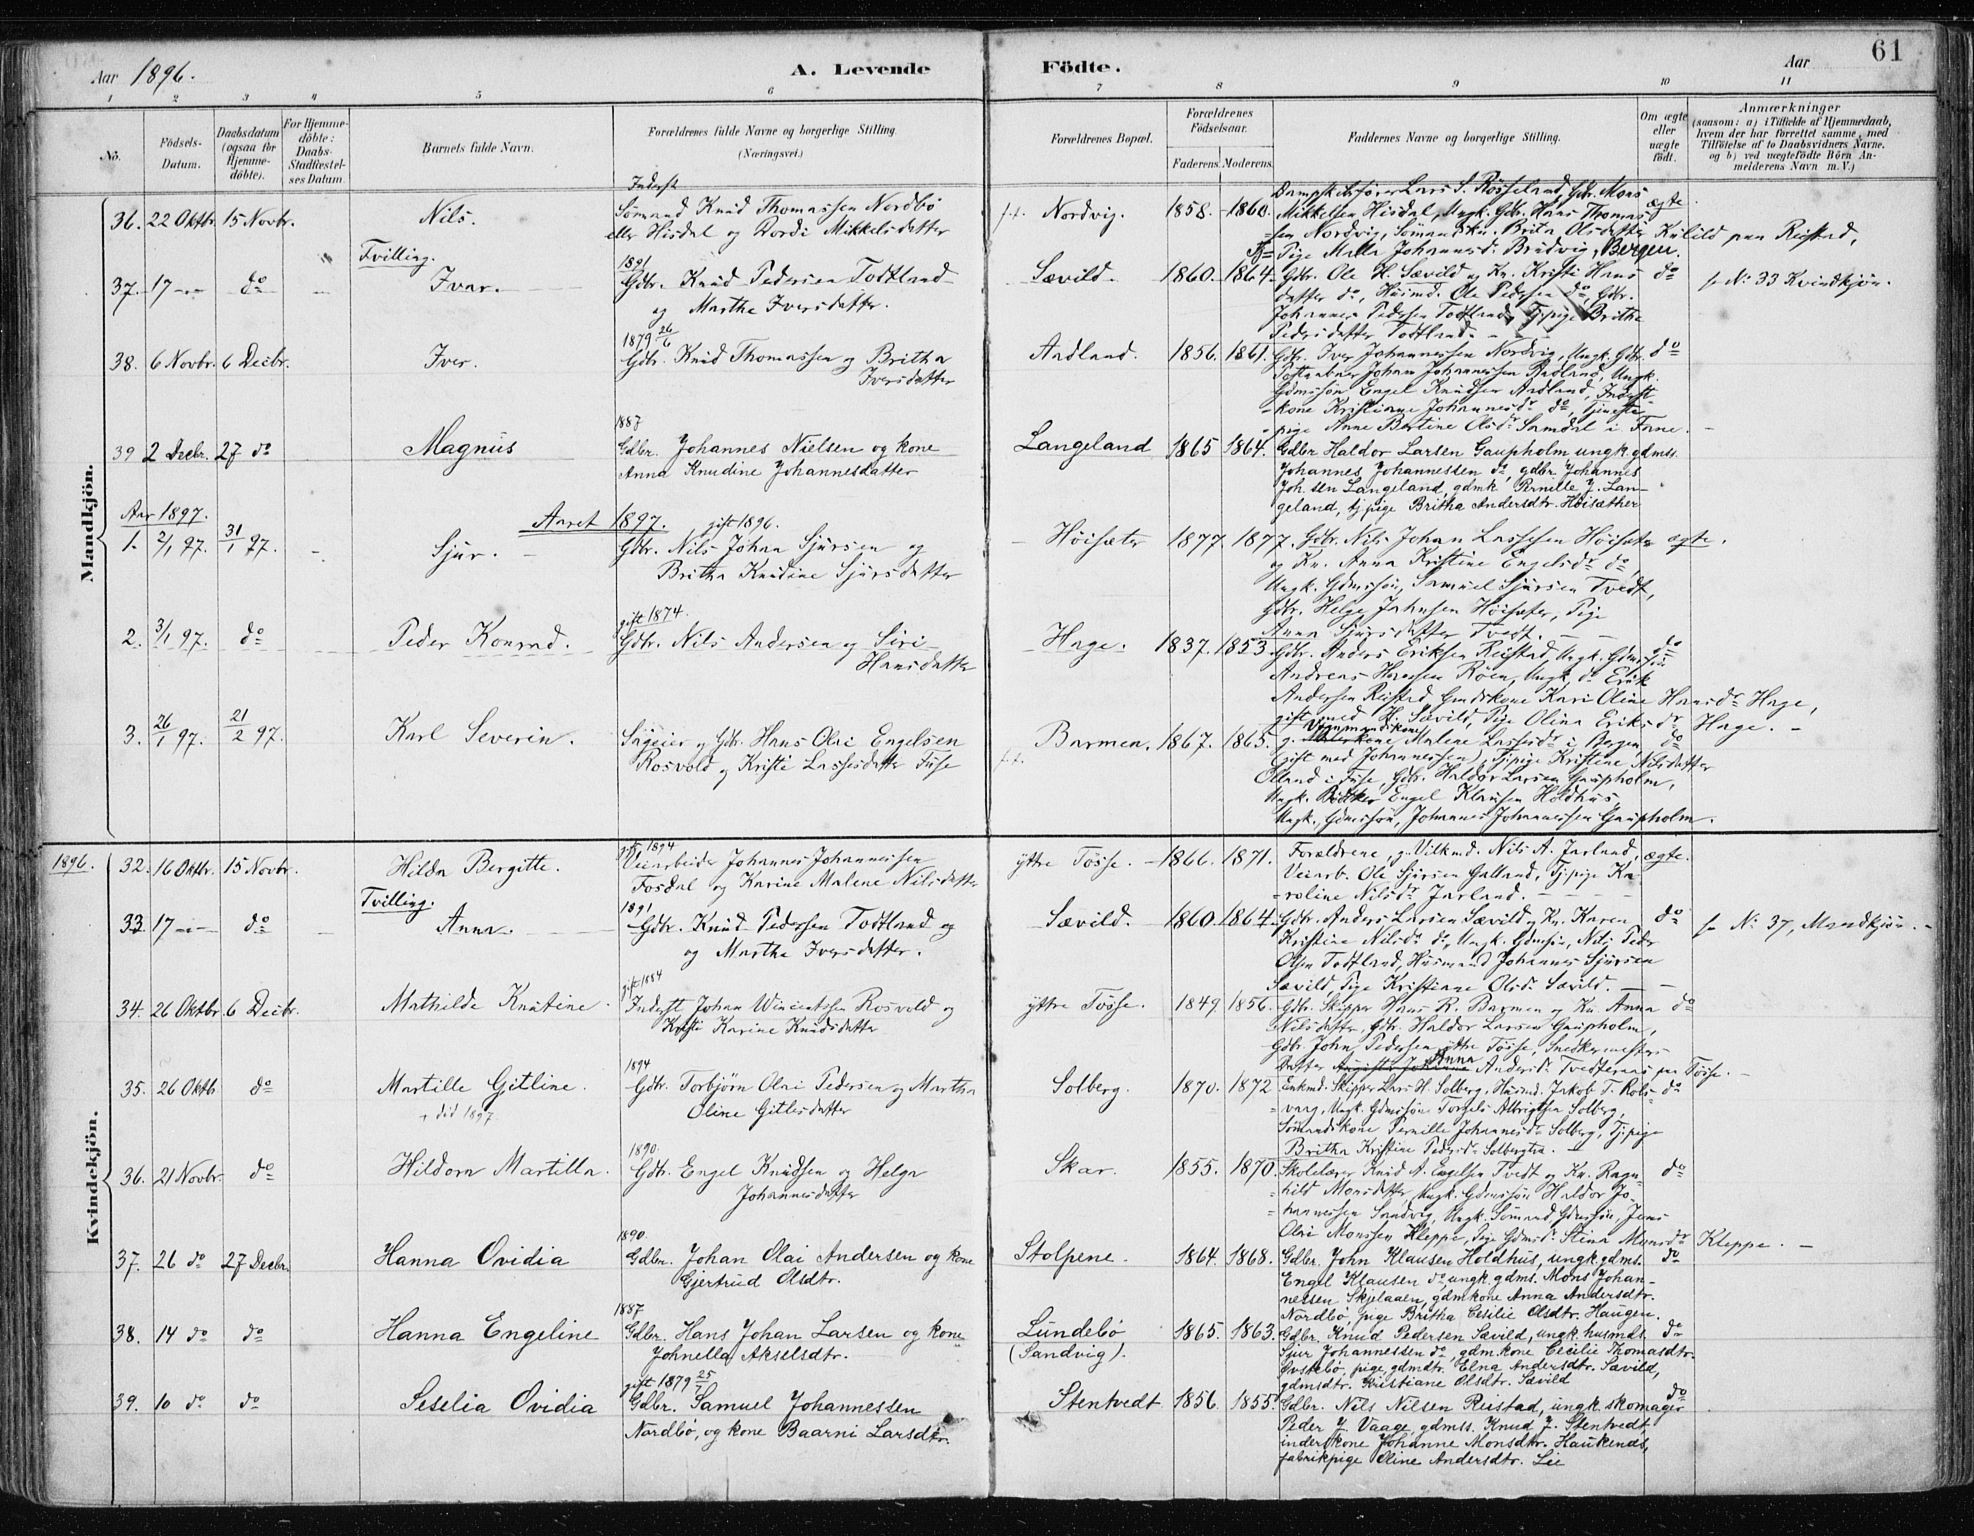 61
Aar 1896.
A. Levende Födte.
Aar
1 2 3 4 5 6 7 8 9 10 11
No.
Födsels-Datum.
Daabsdatum (ogsaa for Hjemme-döbte).
For Hjemme-döbte: Daabs-Stadfæstel-ses Datum.
Barnets fulde Navn.
Forældrenes fulde Navne og borgerlige Stilling. (Næringsvei.)
Forældrenes Bopæl.
Forældrenes Födselsaar.
Faderens. Moderens.
Faddernes Navne og borgerlige Stilling.
Om ægte eller uægte födt.
Anmærkninger
(saasom: a) i Tilfælde af Hjemmedaab,
hvem der har forrettet samme, med
Tilföielse af to Daabsvidners Navne.
og b) ved uægtefödte Börn An-
melderens Navn m. V.)
Mandkjön.
36. 22 Oktbr. 15 Novbr. Nils.
Inderst
Sömand Knud Thomassen Nordbö
eller Hisdal og Vordi Mikkelsdatter
Nordvig. 1858. 1860.
Dampskibsförer Lars S. Rösseland, Gbr. Mons
Mikkelsen Hisdal, Ungk. Gbr. Hans Thomas-
sen Nordvig, Sömandsko. Brita Olsdatter Kulild paa Reistad,
Pige Malla Johannesd. Brudvig, Bergen.
ægte.
Tvilling.
37. 17 -"- do Ivar.
1891
Gbr. Knud Pedersen Todtland
og Martha Iversdatter.
Sævild. 1860. 1864.
Gbr. Ole H. Sævild og Kn. Kristi Hans
datter do, Husmd. Ole Pedersen do, Gbr.
Johannes Pedersen Todtland, Tjpige Britha
Pedersdatter Todtland.
do
No 33 Kvindkjön.
38. 6 Novbr. 6 Decbr. Iver.
1879 26/6
Gbr. Knud Thomassen og Britha
Iversdatter
Andland. 1856. 1861.
Gbr. Iver Johannessen Nordvig, Ungk. Gbr.
Postaabner Johan Johannessen Andland, Ungk.
Gdmssön Engel Knudsen Andland, Inderst-
kone Kristiane Johannesdr do, Tjeneste-
pige Anne Bertine Olsdr Samdal i Fane.
do
39 2 Decbr. 27 do Magnus
1887
Gdbr. Johannes Nielsen og kone
Anna Knudine Johannesdatter
Langeland 1865 1864.
Gdbr Haldor Larsen Gaupholm ungk. gdmss.
Johannes Johannessen do gdbr Johannes
Joh.sen Langeland, gdmk. Pernille J. Lan-
geland, tj.pige Britha Andersdtr. Höisæther
Aar 1897. Aaret 1897.
1. 2/1 97. 31/1 97. Sjur.
gift 1896.
Gbr. Nils Johan Sjursen og
Britha Knudine Sjursdatter
Höisæter 1877. 1877.
Gbr. Nils Johan Lassesen Höisæter
og Kn. Anna Kristine Engelsdr do,
Ungk. Gdmssön, Samuel Sjursen Tvedt,
Gbr. Helge Johnsen Höisæter, Pige
Anna Sjursdatter Tvedt.
ægte.
2. 3/1 97. do Peder Konrad.
gift 1874.
Gbr. Nils Andersen og Siri
Hansdatter
Hage. 1837. 1853.
Gbr. Anders Eriksen Reistad, Ungk. Gdmssön
Andreas Hansen Röen, Ungk. do Erik
Andersen Reistad, Gmdskone Kari Oline Hansdr Hage,
gift med H. Sævild, Pige Olina Eriksdr Hage.
do
3. 26/1 97. 21/2 97. Karl Severin.
Sageier og Gbr. Hans Olai Engelsen
Rosvold og Kristi Lassesdatter Fuse
Barmen. 1867. 1865.
kone Malene Lassesdr i Bergen
(gift med Johannessen), Tjpige Kristine Nilsdatter
Ölland i Fuse, Gbr. Haldor Larsen Gaupholm,
Ungk. Bödker Engel Klausen Holdhus,
Ungk. Gdmssön, Johannes Johannessen Gaupholm.
do
Kvindekjön.
1896. 32. 16 Oktbr. 15 Novbr. Hilda Bergitte.
gift 1894
Veiarbeider Johannes Johannessen
Fosdal og Karine Malene Nilsdatter
ytre Tösse. 1866. 1871.
Forældrene, g. Vilkmd. Nils A. Jarland,
Veiarb. Ole Sjursen Galland, Tjpige Ka-
roline Nilsdr Jarland.
ægte.
Tvilling.
33. 17 -"- do Anna.
1891
Gbr. Knud Pedersen Todtland og
og Martha Iversdatter.
Sævild. 1860. 1864.
Gbr. Anders Larsen Sævild og Kn. Karen
Kristine Nilsdr do, Ungk. Gdmssön, Nils Peder
Olsen Todtland, Husmand Johannes Sjursen
Sævild, Pige Kristiane Olsdr Sævild.
do
No 37, Mandkjön.
34. 26 Oktbr 6 Decbr. Mathilde Knutine.
gift 1884
Inderst Johan Wincentsen Rosvold og
Kristi Karine Knudsdatter
ytre Tösse. 1849. 1856.
Gbr. Skipper Hans R. Barmen og Kn. Anna
Nilsdatter, Gbr. Haldor Larsen Gaupholm,
Gbr. John Pedersen ytre Tösse, Snedkermesters
Datter Anna Andersdr Tvedteraas paa Tösse.
do
35. 26 Oktb do Martille Gitline.
+ död 1897
1894
Gbr. Torbjörn Olai Pedersen og Martha
Oline Gitlesdatter
Solberg. 1870. 1872
Enkmd. Skipper Lars H. Solberg, Husmd. Jakob T. Rols-
vaag, Ungk. Gdmssön Torgels Albrigtsen Solberg,
Sömandskone Pernille Johannesdr Solberg, Tjpige
Britha Kristine Pedersdr Solbergtræ.
do
36. 21 Novbr. do Hildora Martilla.
1890
Gbr. Engel Knudsen og Helga
Johannesdatter
Skar. 1855. 1870.
Skolelærer Knud A. Engelsen Tvedt og Kn. Ragn-
hild Monsdatter, Ungk. Gdmssön Haldor Jo-
hannessen Sandvig, Ungk. Sömand, Gdmssön, Jens
Olai Monssen Kleppe, Pige Gdmsd. Stina Monsdr Kleppe.
do
37. 26 do 27 Decbr. Hanna Ovidia
1890
Gdbr. Johan Olai Andersen og kone
Gjertrud Olsdtr.
Stolpene. 1864. 1868.
Gdbr. John Klausen Holdhus, ungk. gdms.
Engel Klausen do, ungk. gdms. Mons Johan-
nessen Skjelaaen, gdmkone Anna Andersdtr.
Nordbö, pige Britha Cesilie Olsdtr. Haugen.
do
38. 14 do do Hanna Engeline
1887
Gdbr. Hans Johan Larsen og kone
Johnella Akselsdtr.
Lundebö
(Sandvig). 1865. 1863.
Gdbr. Knud Pedersen Sævild, ungk. husmds.
Sjur Johannessen do, gdm.kone Cecilie Thomasdtr.
Övstebö, pige, gdmdtr. Elna Andersdtr. Sævild,
gdmsdtr. Kristiane Olsdtr. Sævild
do
39. 10 do do Seselia Ovidia
gift 1879 25/7
Gdbr. Samuel Johannessen
Nordbö, og kone Baarni Larsdtr.
Stentvedt 1856. 1855.
Gdbr. Nils Nilsen Reistad, ungk. skomager
Peder J. Vaage, gdmss. Knud J. Stentvedt,
inderstkone Johanne Monsdtr. Haukenæs,
fabrikpige Oline Andersdtr. Lie
do